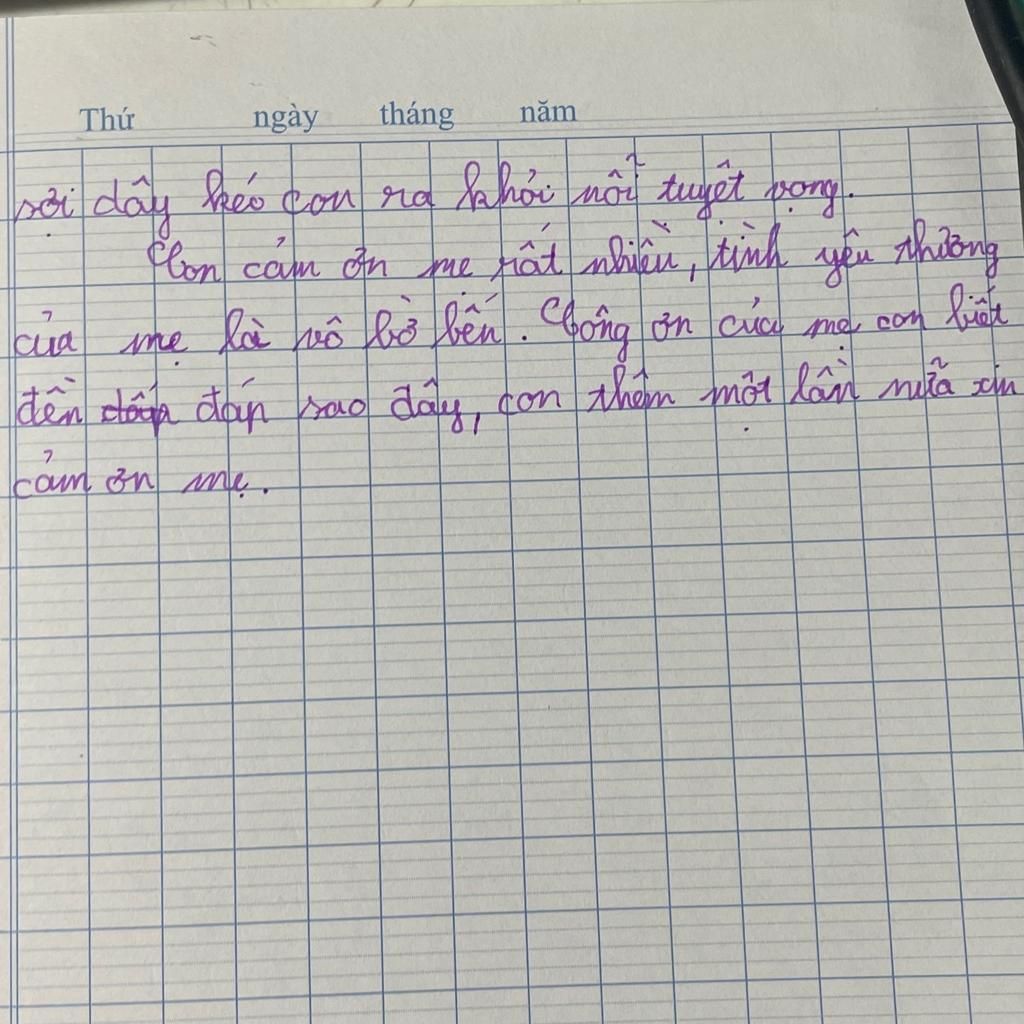 Thứ ngày tháng năm
sợi dây kéo con ra khỏi nỗi tuyệt vọng.
Con cảm ơn mẹ rất nhiều, tình yêu thương
của mẹ là vô bờ bến. Công ơn của mẹ con biết
đền đáp sao đây, con thêm một lần nữa xin
cảm ơn mẹ.